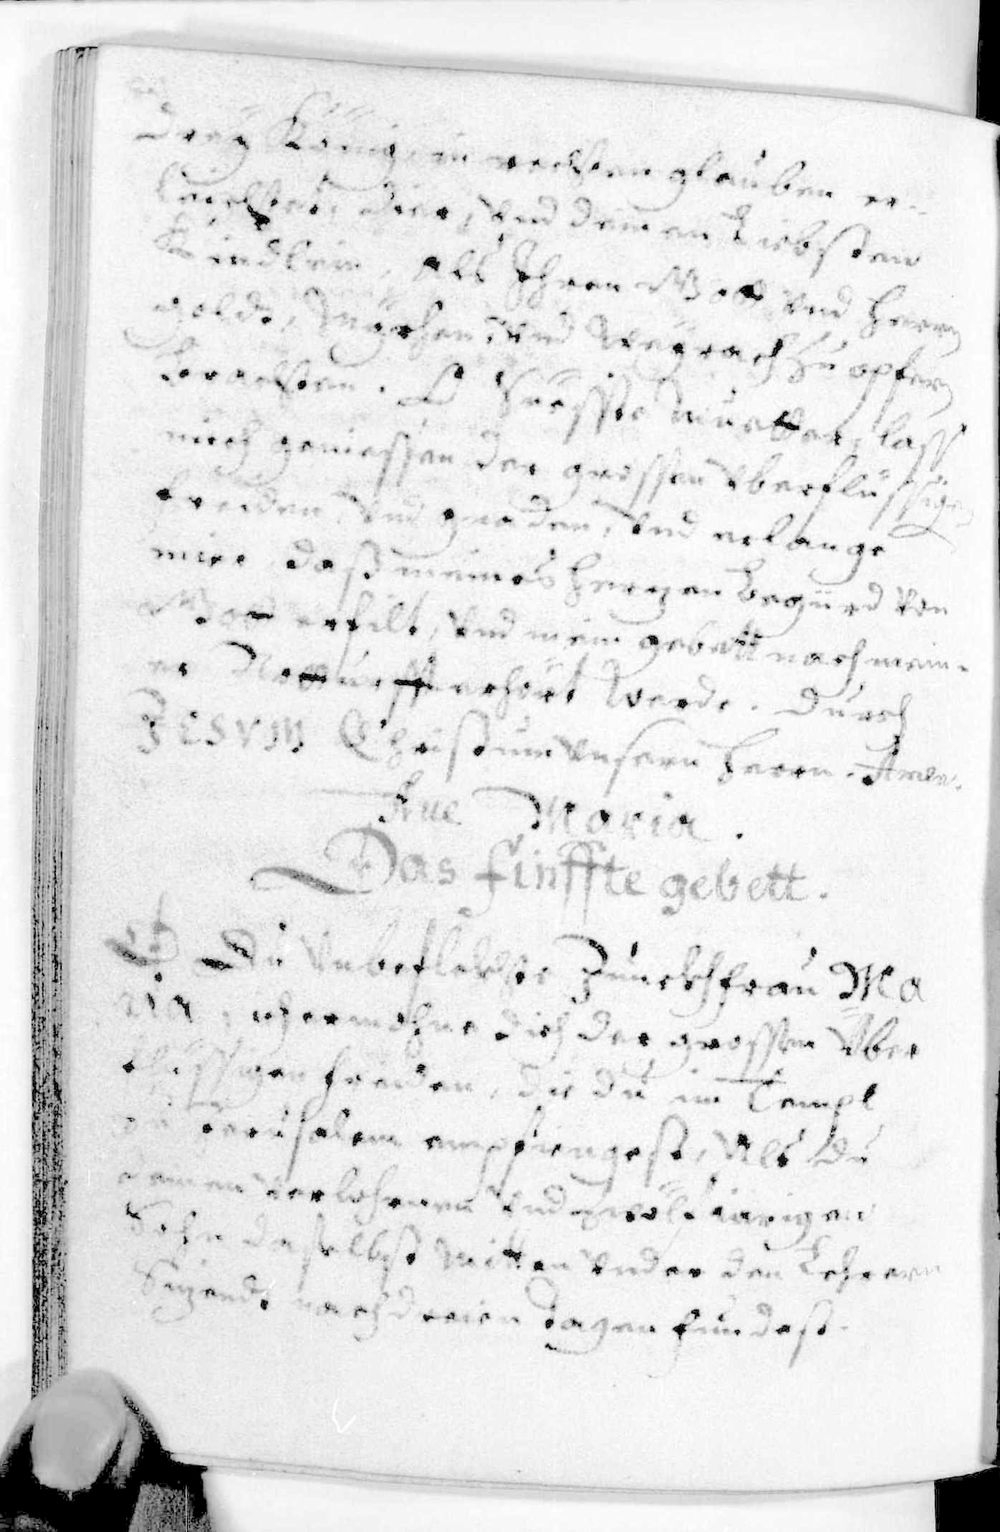 Dreÿ König, in rechten glauben er-
leichtet, dier, vnd deinem Liebsten
Kindlein, Als Ihren Gott vnd herrn
goldt, Mÿrhen, vnd Weÿrach zu opfern
brachten. O süesste Muetter, lass
mich geniessen der grossen vberflüssigen
freiden, vnd gnaden, vnd erlange
mier, daß meines herzen begierd von
Gott erfilt, vnd mein gebett nach mein-
er Notturfft erhört werde. Durch
JESVM Christum vnsern herrn. Amen.
Aue Maria.
Das finffte gebett.
O Du vnbeflekhte Junckhfrau Ma
ria, ich ermahne dich der grossen vber
flüssigen freiden, die du im Templ
zu Jerusalem empfiengest, Als du
deinen verlohrnen vnd zwölfjärigen
Sohn daselbst mitten vnder den Lehrern
Sizendt nach dreien Tagen fundest.